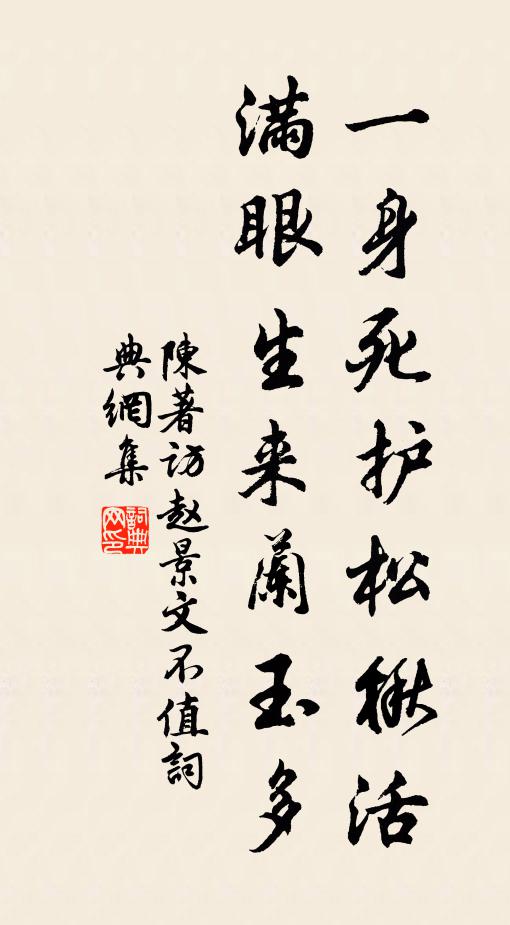 一身死护松楸活
满眼生来蘭玉多
陳著访赵景文不值詞
典網集
詞典网印